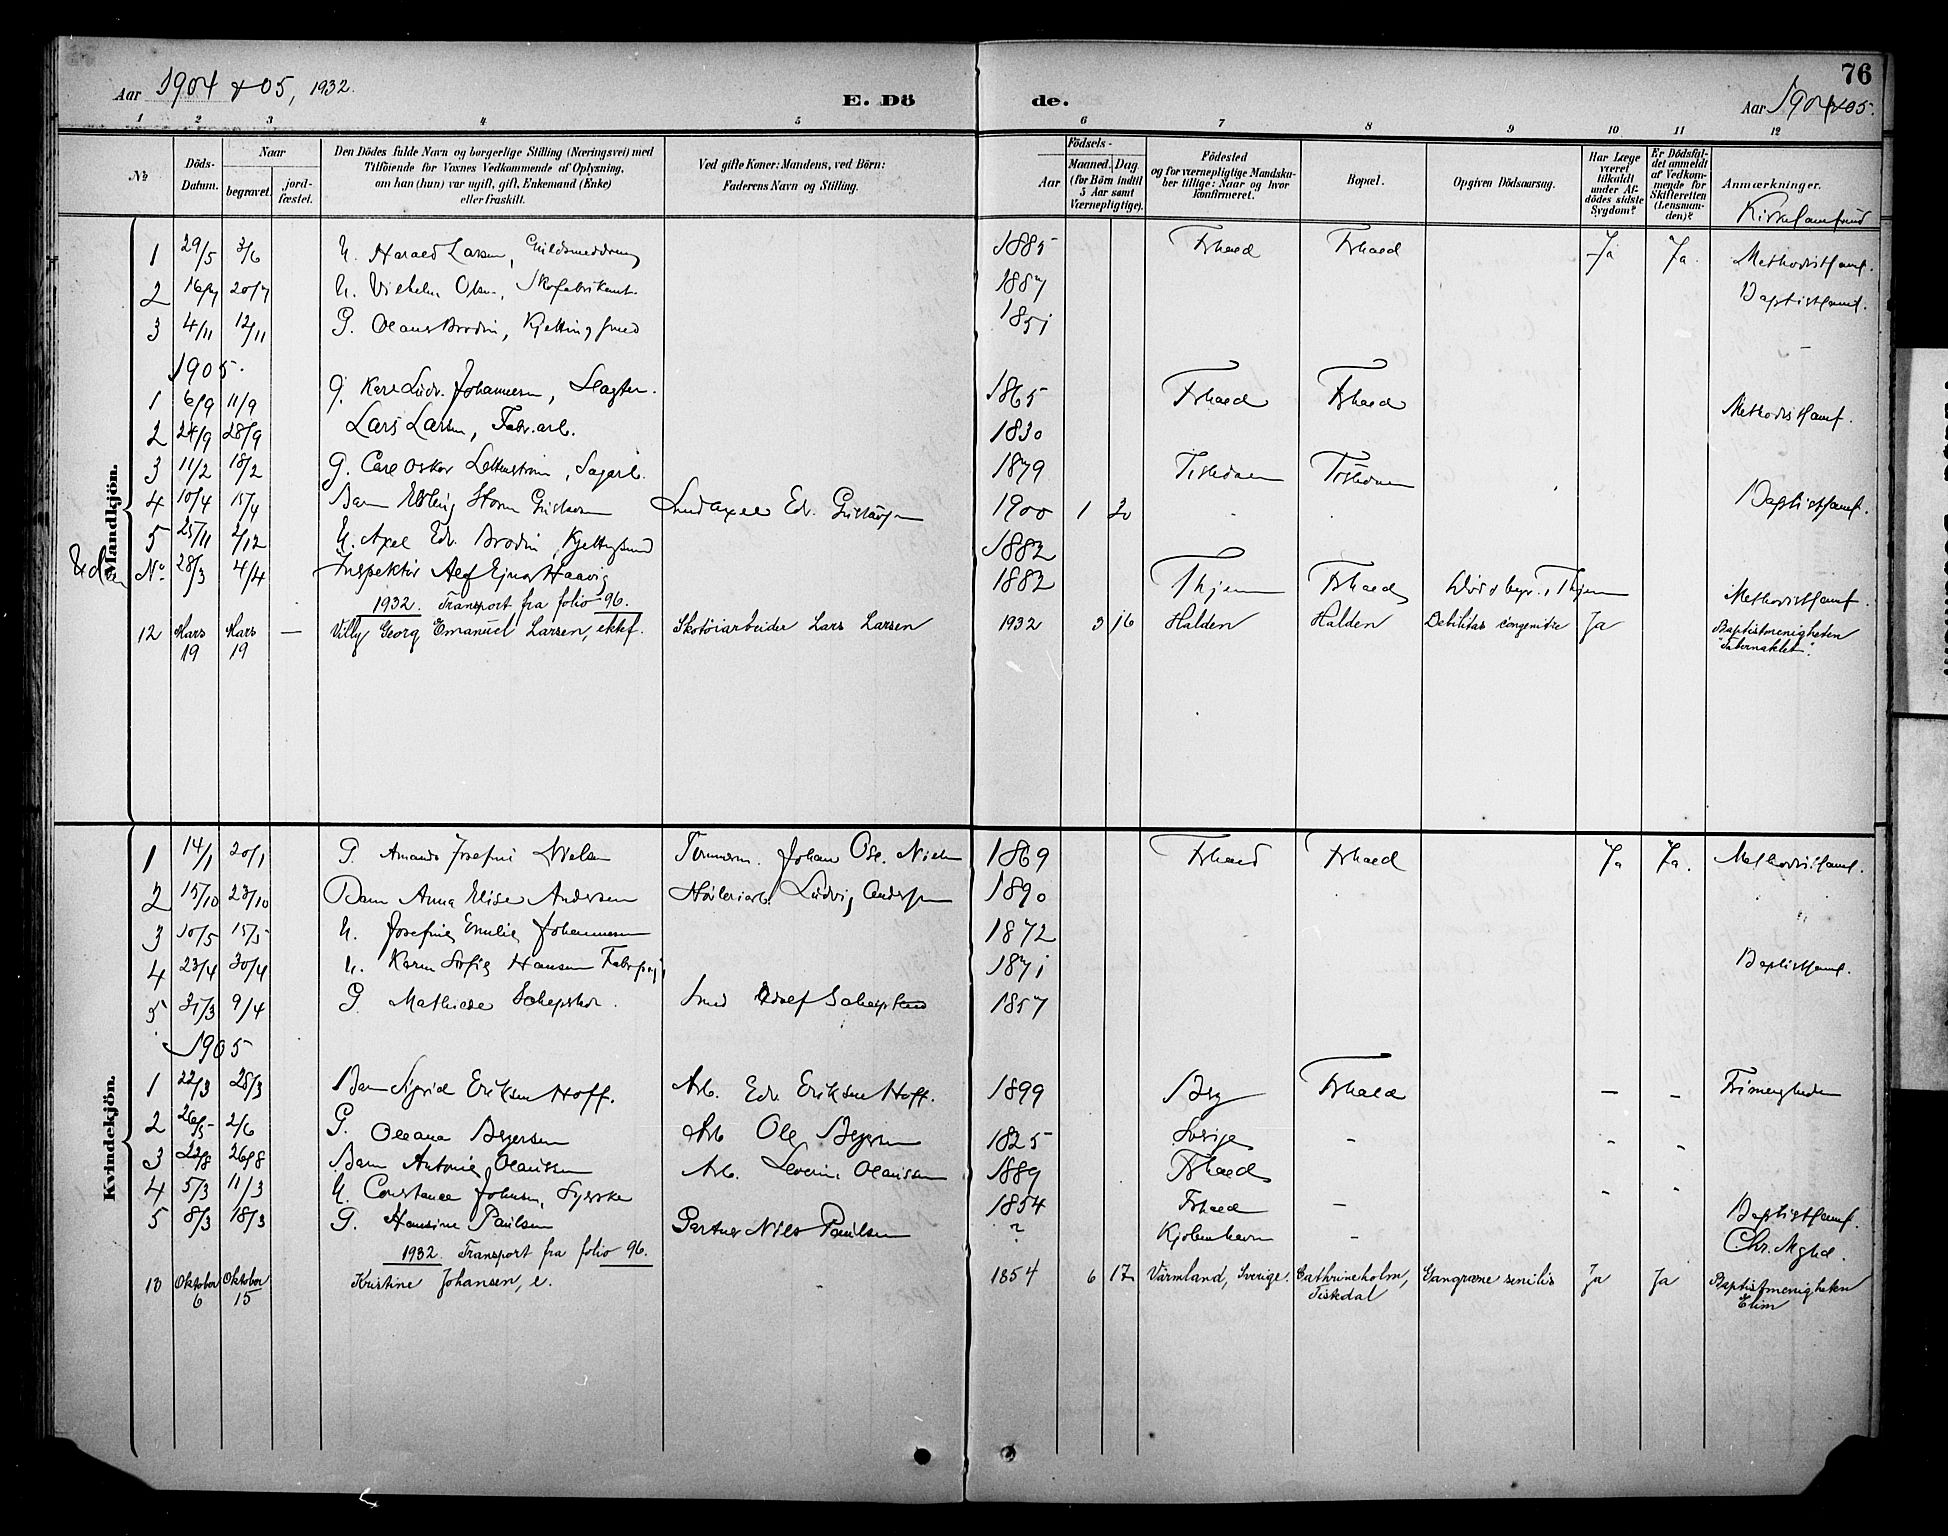 76
Aar 1904 & 05, 1932.
E. Döde.
Aar 1904 & 05.
1 2 3 4 5 6 7 8 9 10 11 12
No.
Döds-Datum.
Naar
begravet.
jord-fæstet.
Den Dödes fulde Navn og borgerlige Stilling (Næringsvei) med
Tilföiende for Voxnes Vedkommende af Oplysning,
om han (hun) var ugift, gift, Enkemand (Enke)
eller fraskilt.
Ved gifte Koner: Mandens, ved Börn:
Faderens Navn og Stilling.
Födsels-
Aar
Maaned. Dag
(for Börn indtil
5 Aar samt
Værnepligtige).
Födested
og for værnepligtige Mandska-
ber tillige: Naar og hvor
konfirmeret.
Bopæl.
Opgiven Dödsaarsag.
Har Læge
været
tilkaldt
under Af-
dödes sidste
Sygdom?
Er Dödsfal-
det anmeldt
af Vedkom-
mende for
Skifteretten
(Lensman-
den)?
Anmærkninger.
Kirkesamfund
Mandkjön.
1 29/5 3/6 U. Harald Larsen, 1885 Frhald Frhald Ja Ja. Methodistsamf.
2 16/7 20/7 U. Vilhelm Olsen, Skofabrikant. 1887 Baptistsamf.
3 4/11 12/11 G. Olaus Brodin, Kjettingsmed 1851
1905.
1 6/9 11/9 G. Karl Ludv. Johannesen, Slagter. 1865 Frhald Frhald Methodistsamf.
2 24/9 28/9 Lars Larsen, Fabr.arb. 1830
3 11/2 18/2 G. Carl Oskar, Sagarb. 1879 Tistedalen Tistedalen
4 10/4 15/4 Barn Storm Smed Axel Edv. 1900 1 20 Baptistsamf.
5 25/11 2/12 U. Axel Edv. Brodin, Kjettingsmed 1882
No. 28/3 4/4 Inspektör Alf Ejnar Haavig 1882 Thjem Frhald Thjem Methodistsamf.
1932. Transport fra folio 96.
12 Mars 19 Mars 19 — Villy Georg Emanuel Larsen, ektef. Skotöiarbeider Lars Larsen 1932 3 16 Halden Halden Debilitas congenitæ Ja Baptistmenigheten
"Tabernaklet".
Kvindekjön.
1 14/1 20/1 G. Amanda Josefine Nielsen Tömmerm. Johan Nielsen 1869 Frhald Frhald Ja Ja. Methodistsamf.
2 15/10 23/10 Barn Anna Elise Andersen Ludvig Andersen 1890 "
3 10/5 15/5 U. Josefine Emilie Johannesen 1872
4 23/4 30/4 U. Karen Sofie Hansen 1871 Baptistsamf.
5 31/3 9/4 G. Mathilde Smed Adolf 1857
1905
1 22/3 28/3 Barn Sigrid Eriksen Hoff. Arb. Edv. Eriksen Hoff. 1899 Berg Frhald — — Frimenigheden
2 26/5 2/6 G. Oleana Arb. Ole 1825 Sverige
3 22/8 26/8 Barn Antonie Olaussen Arb. Severin Olaussen 1889 Frhald
4 5/3 11/3 U. Constance Johnsen, Syerske 1854 Frhald — Baptistsamf.
5 8/3 18/3 G. Hansine Paulsen Gartner Nils Paulsen ? Kjöbenhavn — Chr. Mghd.
1932. Transport fra folio 96.
10 Oktober 6 Oktober 15 Kristine Johansen, e. 1854 6 17 Värmland, Sverige. Cathrineholm,
Tistedal Gangræne senilis Ja Ja Baptistmenigheten
Elim